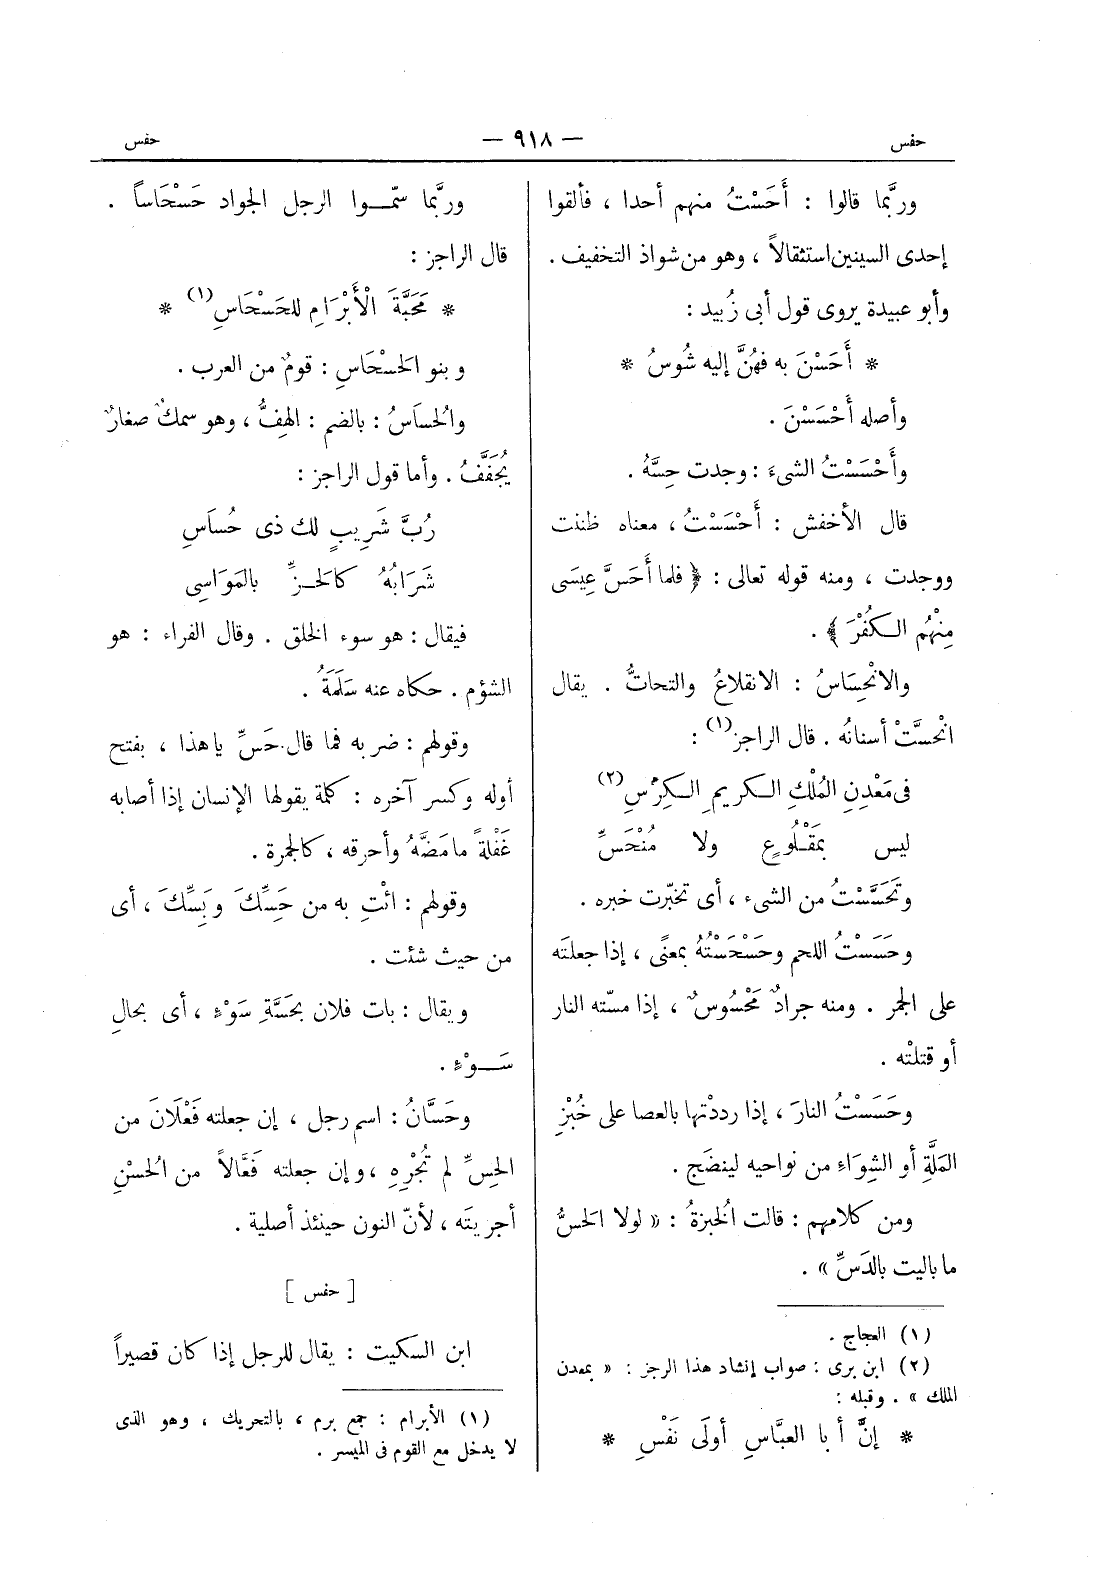 حفس
— ٩١٨ —
حفس
وربَّما قالوا : أَحَسْتُ منهم أحدا ، فألقوا
إحدى السينين استثقالاً ، وهو من شواذ التخفيف .
وأبو عبيدة يروى قول أبى زُبيد :
* أَحَسْنَ به فهُنَّ إليه شُوسُ *
وأصله أَحْسَسْنَ .
وأَحْسَسْتُ الشىءَ : وجدت حِسَّهُ .
قال الأخفش : أَحْسَسْتُ ، معناه ظننت
ووجدت ، ومنه قوله تعالى : ﴿ فلما أَحَسَّ عِيسَى
مِنْهُم الكُفْرَ ﴾ .
والانْحِسَاسُ : الانقلاعُ والتحاتُّ . يقال
انْحسَّتْ أسنانُه . قال الراجز(١) :
فى مَعْدِنِ المُلْكِ الكريمِ الكِرْسِ(٢)
ليس بمَقْلُوعٍ ولا مُنْحَسِّ
وتَحَسَّسْتُ من الشىء ، أى تخبّرت خبره .
وحَسَسْتُ اللحم وحَسْحَسْتُهُ بمعنًى ، إذا جعلتَه
على الجمر . ومنه جرادٌ مَحْسُوسٌ ، إذا مسّته النار
أو قتلتْه .
وحَسَسْتُ النارَ ، إذا رددْتها بالعصا على خُبْزِ
المَلَّةِ أو الشِوَاءِ من نواحيه لينضَج .
ومن كلامهم : قالت الخُبزةُ : « لولا الحَسُّ
ما باليت بالدَسِّ » .
(١) العجاج .
(٢) ابن برى : صواب إنشاد هذا الرجز : « بمعدن
الملك » . وقبله :
* إنَّ أبا العبَّاسِ أولَى نَفْسِ *
وربَّما سمّوا الرجل الجواد حَسْحَاساً .
قال الراجز :
* مَحَبَّةَ الْأَبْرَامِ للحَسْحَاسِ(١) *
وبنو الحَسْحَاسِ : قومٌ من العرب .
والحُسَاسُ : بالضم : الهِفُّ ، وهو سمكٌ صغارٌ
يُجَفَّفُ . وأما قول الراجز :
رُبَّ شَرِيبٍ لك ذى حُسَاسِ
شَرَابُهُ كالحَزِّ بالمَوَاسِى
فيقال : هو سوء الخلق . وقال الفراء : هو
الشؤم . حكاه عنه سَلَمَةُ .
وقولهم : ضربه فما قال حَسِّ ياهذا ، بفتح
أوله وكسر آخره : كلمة يقولها الإنسان إذا أصابه
غَفْلةً مامَضَّهُ وأحرقه ، كالجمرة .
وقولهم : ائْتِ به من حَِسِّكَ وبَِسِّكَ ، أى
من حيث شئت .
ويقال : بات فلان بحَسَّةِ سَوْءٍ ، أى بحالِ
سَوْءٍ .
وحَسَّانُ : اسم رجل ، إن جعلته فَعْلَانَ من
الحِسِّ لم تُجْرِهِ ، وإن جعلته فَعَّالاً من الحُسْنِ
أجريتَه ، لأنّ النون حينئذ أصلية .
[ حفس ]
ابن السكيت : يقال للرجل إذا كان قصيراً
(١) الأبرام : جمع برم ، بالتحريك ، وهو الذى
لا يدخل مع القوم فى الميسر .